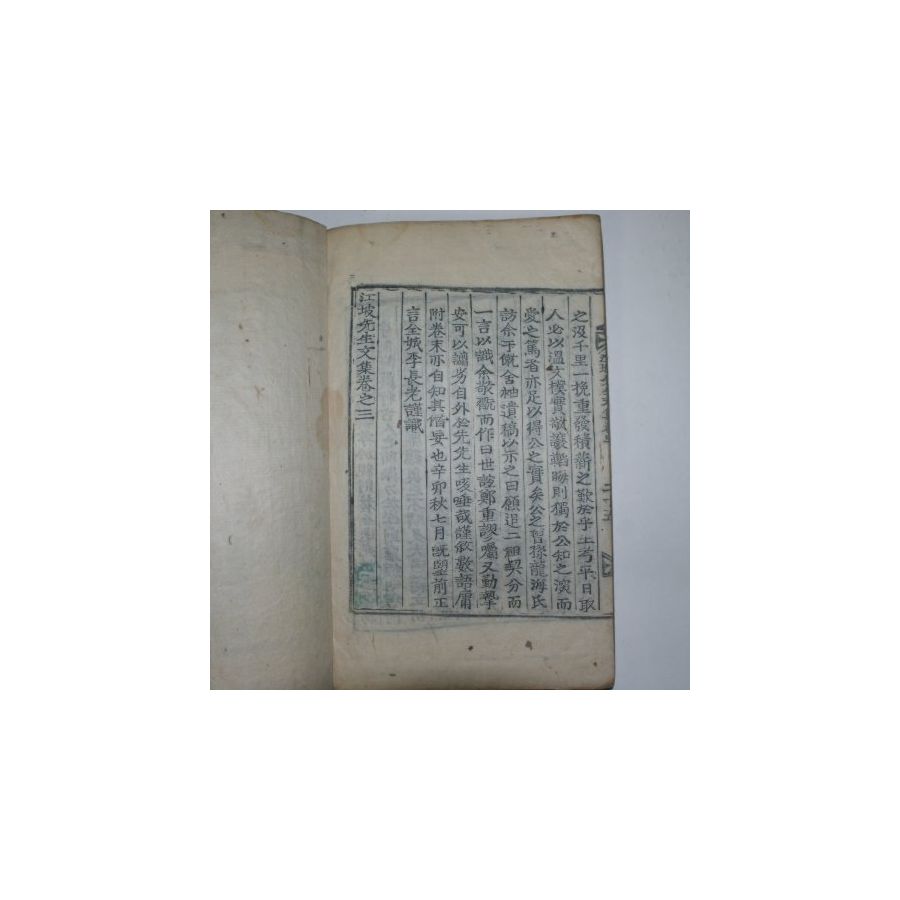 之汲千里一挽重發積薪之歎於乎土考平日取
人必以溫文樸實敬讓韜晦則獨於公知之深而
愛之篤者亦足以得公之實矣公之曾孫龍海氏
訪余于僦舍袖遺稿以示之因願追二祖契分而
一言以識余敬翫而作曰世誼鄭重謬囑又勤摯
安可以譾劣自外於先先生咳唾哉謹敘數語庸
附卷末亦自知其僭妄也辛卯秋七月旣望前正
言全城李長老謹識
江坡先生文集卷之三